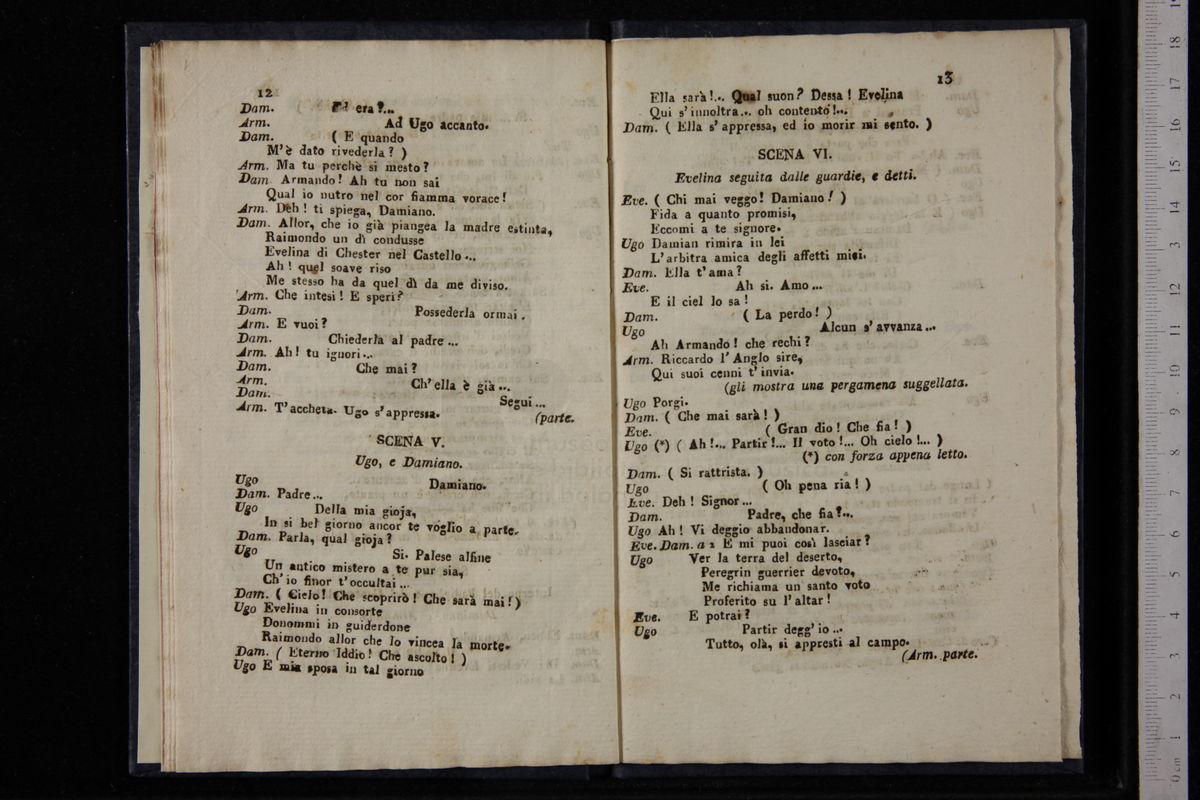 12
Dam. Ed era?...
Arm. Ad Ugo accanto.
Dam. ( E quando
M'è dato rivederla? )
Arm. Ma tu perchè si mesto?
Dam. Armando! Ah tu non sai
Qual io nutro nel cor fiamma vorace!
Arm. Deh! ti spiega, Damiano.
Dam. Allor, che io già piangea la madre estinta,
Raimondo un dì condusse
Evelina di Chester nel Castello...
Ah! quel soave riso
Me stesso ha da quel dì da me diviso.
Arm. Che intesi! E speri?
Dam. Possederla ormai.
Arm. E vuoi?
Dam. Chiederla al padre...
Arm. Ah! tu ignori...
Dam. Che mai?
Arm. Ch'ella è già...
Dam. Segui...
Arm. T'accheta. Ugo s'appressa. (parte.
SCENA V.
Ugo, e Damiano.
Ugo Damiano.
Dam. Padre...
Ugo Della mia gioja,
In sì bel giorno ancor te voglio a parte.
Dam. Parla, qual gioja?
Ugo Si. Palese alfine
Un antico mistero a te pur sia,
Ch'io finor t'occultai...
Dam. ( Cielo! Che scoprirò! Che sarà mai!)
Ugo Evelina in consorte
Donommi in guiderdone
Raimondo allor che lo vincea la morte.
Dam. ( Eterno Iddio! Che ascolto! )
Ugo E mia sposa in tal giorno
13
Ella sarà!... Qual suon? Dessa! Evelina
Qui s'innoltra... oh contento!...
Dam. ( Ella s'appressa, ed io morir mi sento. )
SCENA VI.
Evelina seguita dalle guardie, e detti.
Eve. ( Chi mai veggo! Damiano! )
Fida a quanto promisi,
Eccomi a te signore.
Ugo Damian rimira in lei
L'arbitra amica degli affetti miei.
Dam. Ella t'ama?
Eve. Ah si. Amo...
E il ciel lo sa!
Dam. ( La perdo! )
Ugo Alcun s'avvanza...
Ah Armando! che rechi?
Arm. Riccardo l'Anglo sire,
Qui suoi cenni t'invia.
(gli mostra una pergamena suggellata.
Ugo Porgi.
Dam. ( Che mai sarà! )
Eve. ( Gran dio! Che fia! )
Ugo (*) ( Ah!... Partir!... Il voto!... Oh cielo!... )
(*) con forza appena letto.
Dam. ( Si rattrista. )
Ugo ( Oh pena ria! )
Eve. Deh! Signor...
Dam. Padre, che fia?...
Ugo Ah! Vi deggio abbandonar.
Eve. Dam. a 2 E mi puoi così lasciar?
Ugo Ver la terra del deserto,
Peregrin guerrier devoto,
Me richiama un santo voto
Proferito su l'altar!
Eve. E potrai?
Ugo Partir degg'io...
Tutto, olà, si appresti al campo.
(Arm. parte.